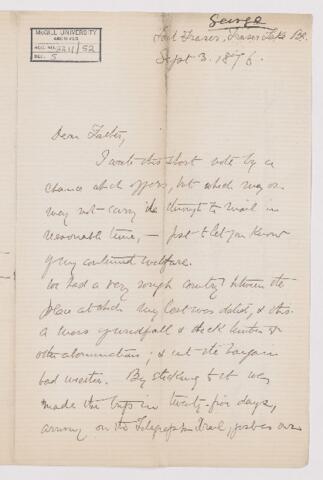 George
McGILL UNIVERSITY
ARCHIVES
ACC. NO. 2211/52
REF. 5
Fort Fraser, Fraser Lake BC.
Sept 3. 1876.
Dear Father,
I write this short note by a
chance which offers, but which may or
may not carry it through to mail in
reasonable time, – just to let you know
of my continued welfare.
We had a very rough country between the
place at which my last was dated, & this.
a mass of windfall & thick timber &
other abominations; & to the bargain
bad weather. By sticking to it we
made the trip in twenty-five days,
arriving on the Telegraph Trail, just as our